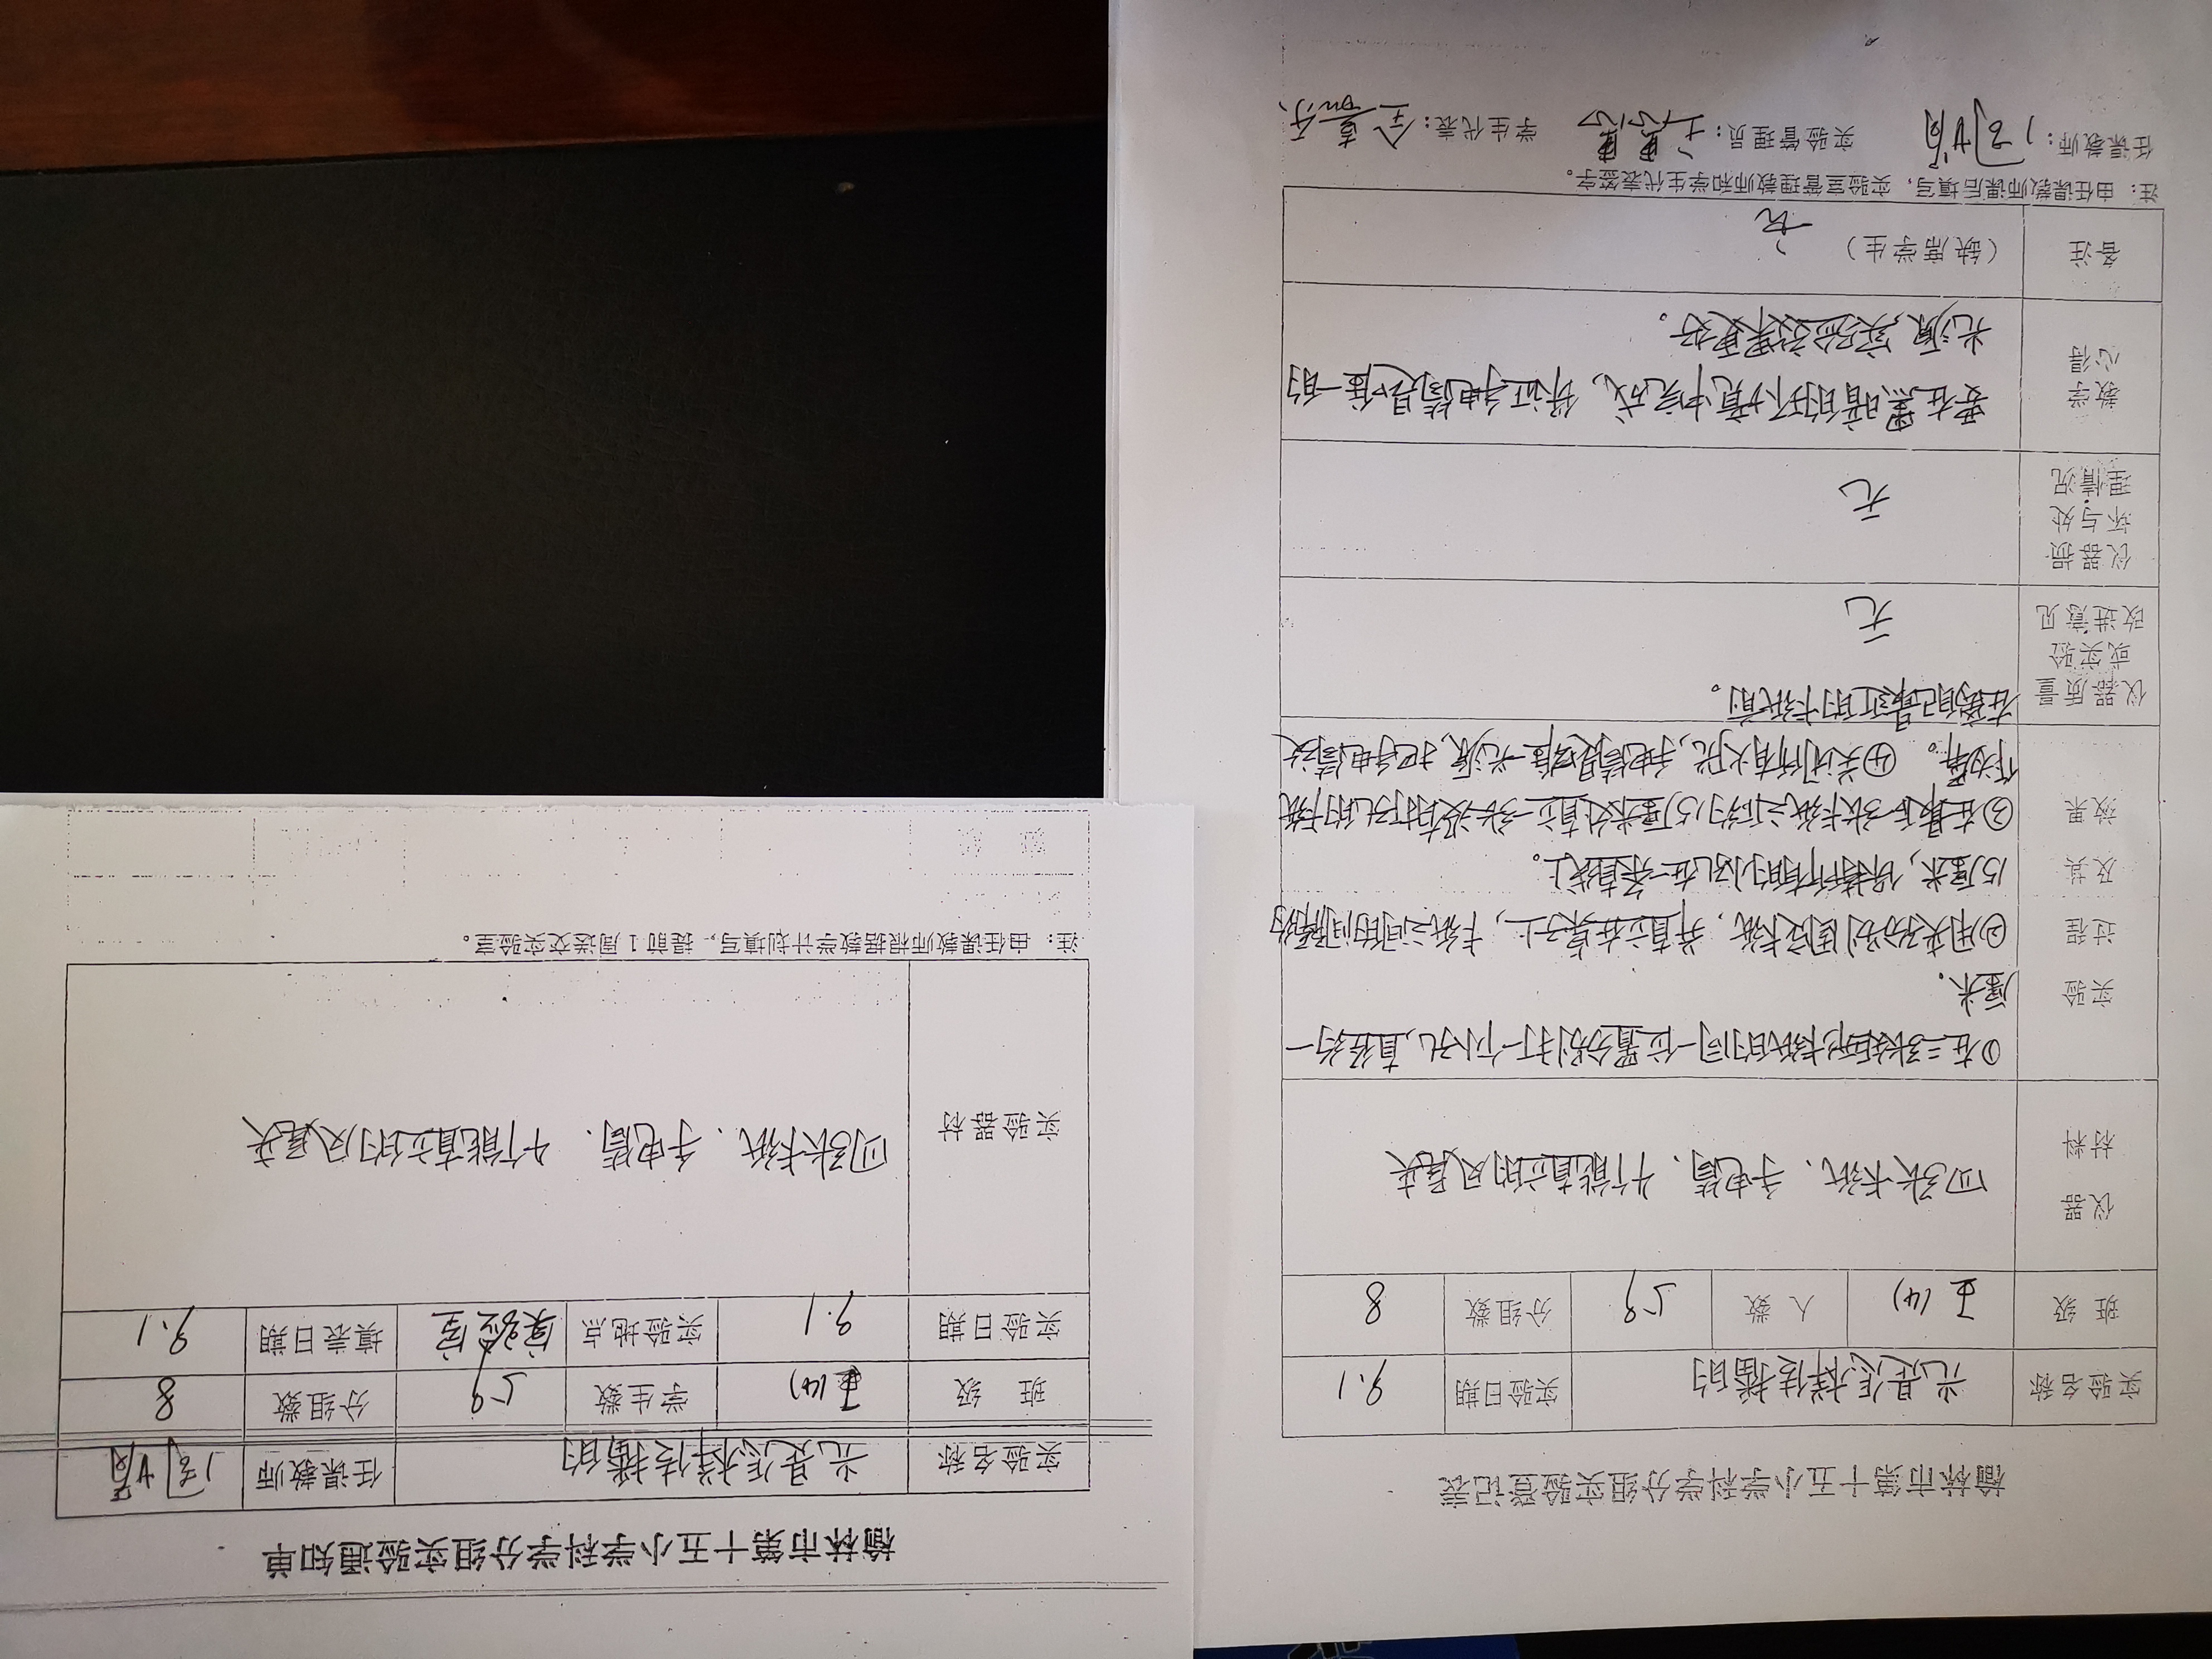 榆林市第十五小学科学分组实验登记表
实验名称 光是怎样传播的 实验日期 9.1
班 级 五(4) 人 数 59 分组数 8
仪器材料 四张卡纸、手电筒、4个能直立的凤尾夹
实验过程及其效果
①在三张矩形卡纸的同一位置分别打一个小孔,直径约一
厘米。
②用夹子分别固定卡纸,并直立在桌子上,卡纸之间的间隔约
15厘米,保持所有的小孔在一条直线上。
③在最后一张卡纸之后约15厘米处直立一张没有打孔的卡纸
作为屏。④关闭所有火光,手电筒是唯一光源,把手电筒放
在离自己最近的卡纸前。
仪器质量或实验改进意见 无
仪器损坏与处理情况 无
教学心得 要在黑暗的环境中完成,保证手电筒是唯一的
光源,实验效果更好。
备注 (缺席学生)
注:由任课教师课后填写,实验室管理教师和学生代表签字。
任课教师: 实验管理员: 学生代表:
榆林市第十五小学科学分组实验通知单
实验名称 光是怎样传播的 任课教师
班 级 五(4) 学生数 59 分组数 8
实验日期 9.1 实验地点 实验室 填表日期 9.1
实验器材 四张卡纸、手电筒、4个能直立的凤尾夹
注:由任课教师根据教学计划填写,提前1周送交实验室。